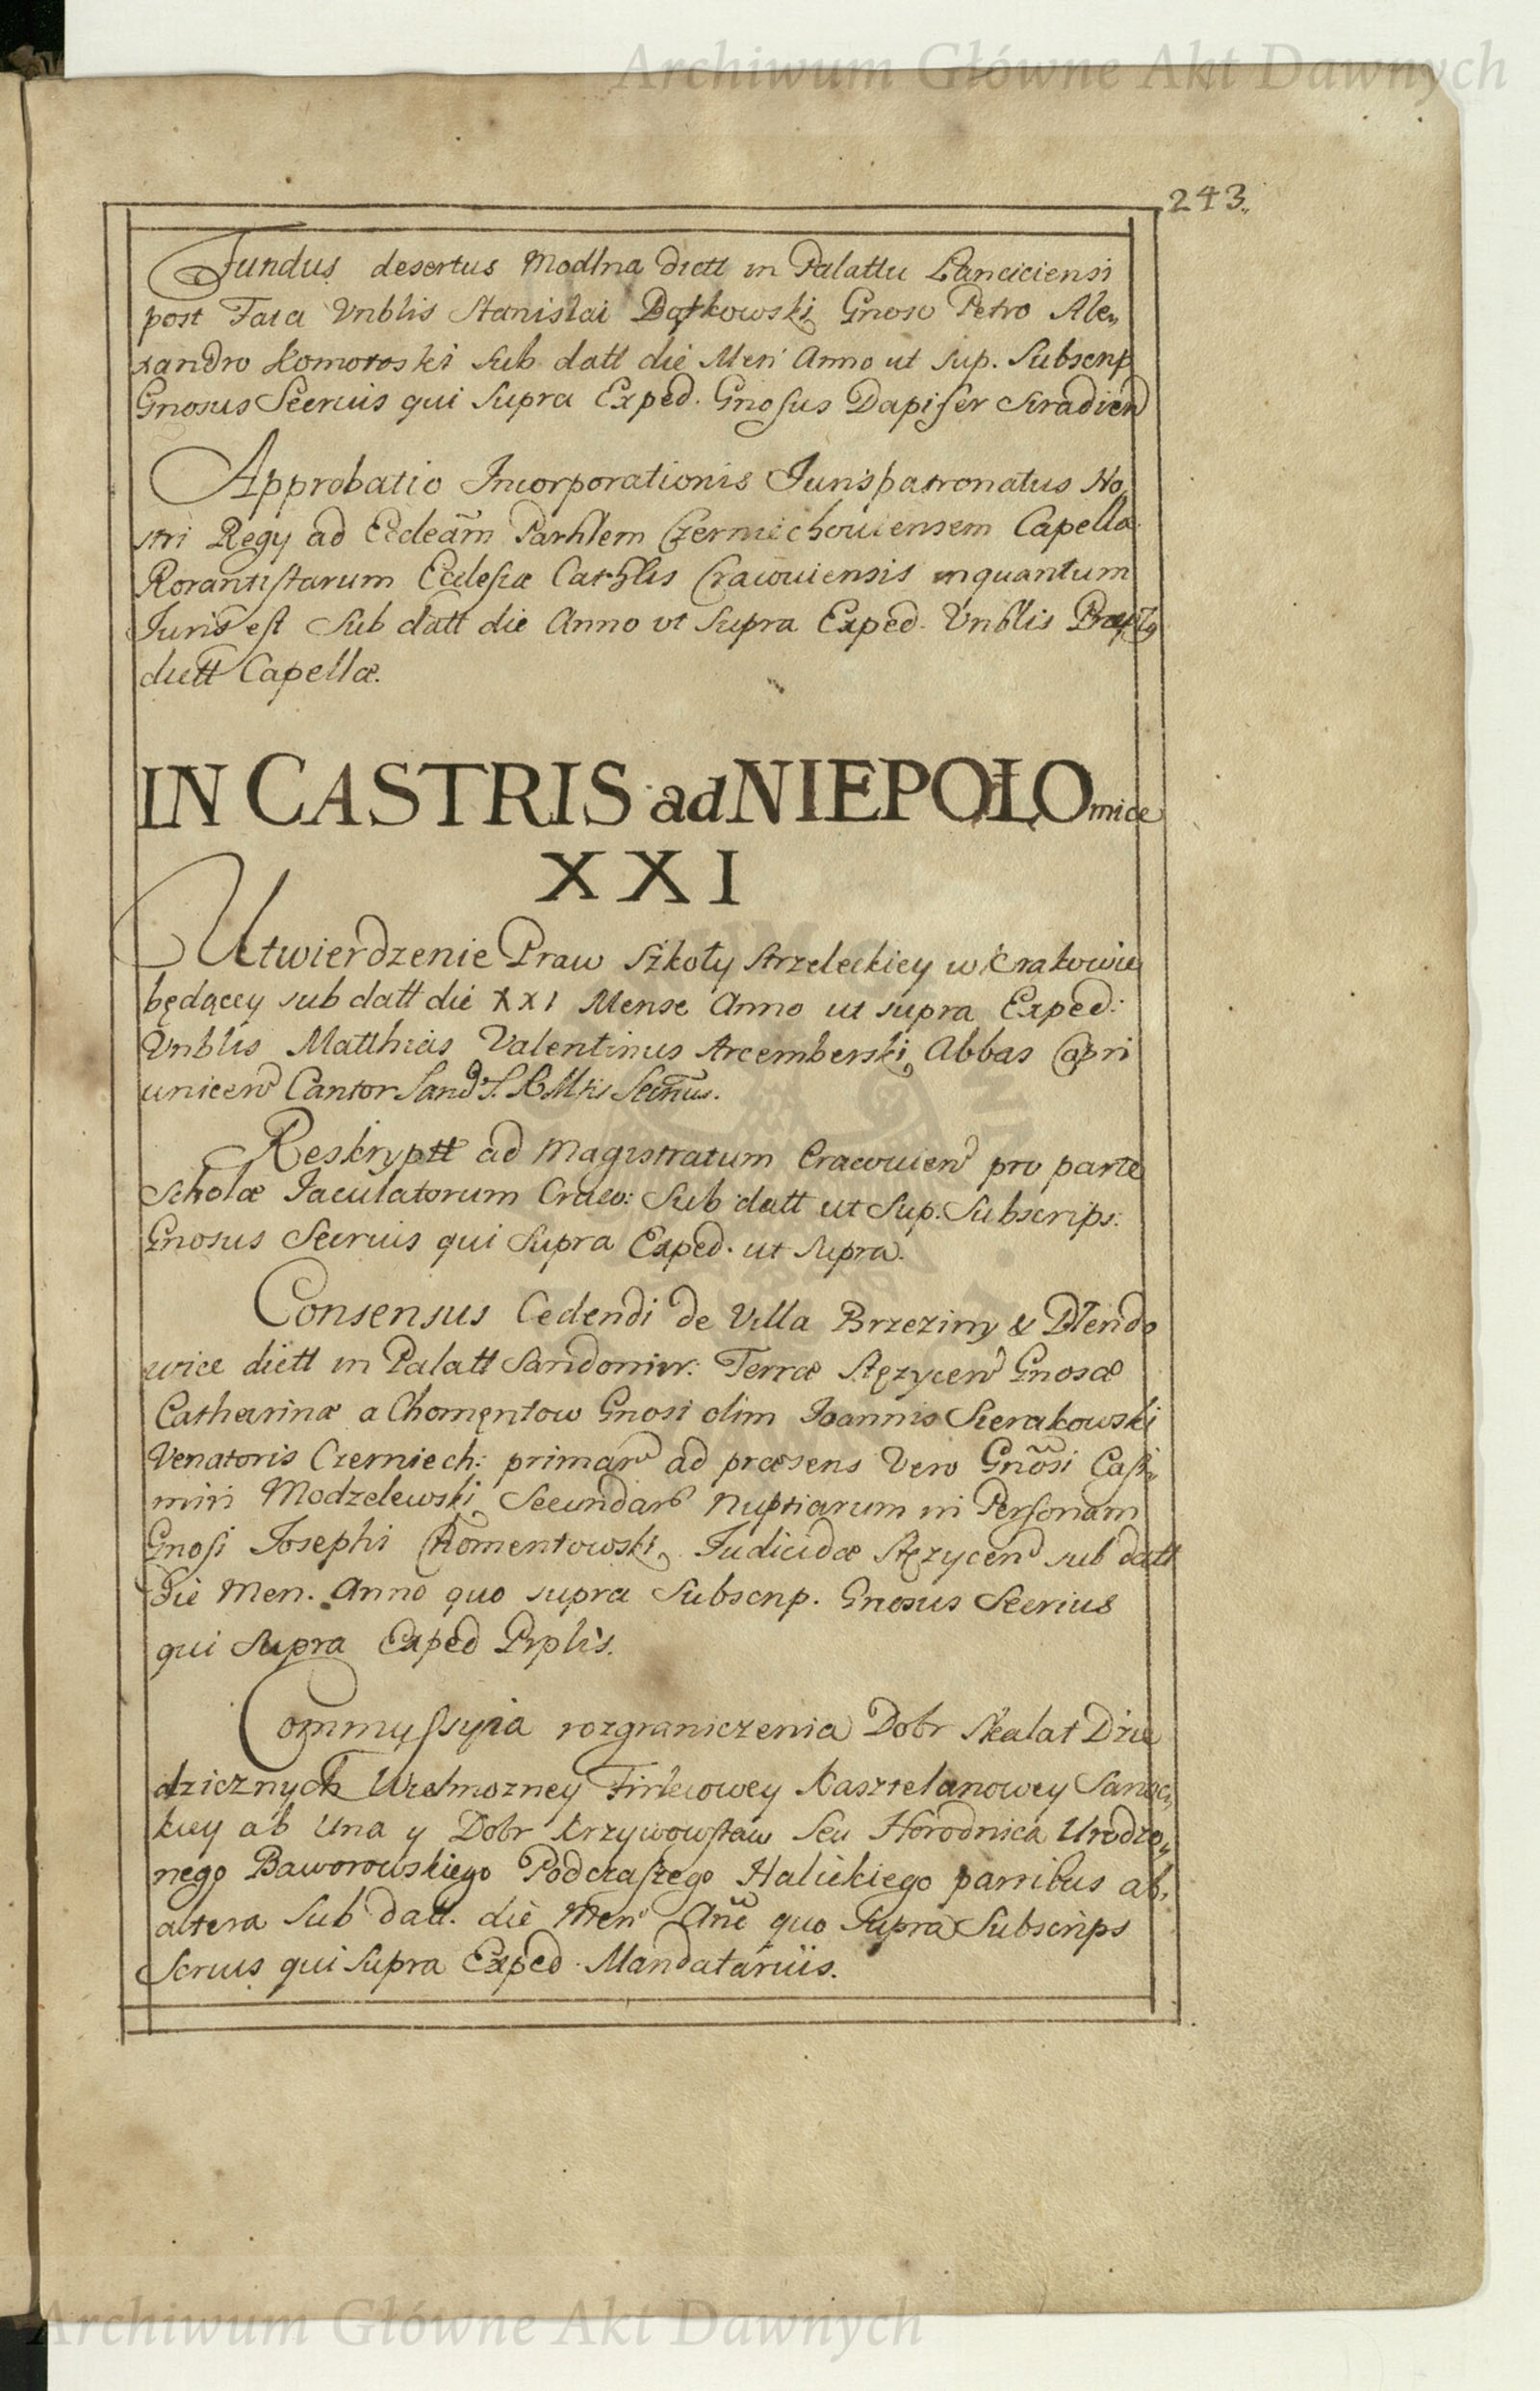 Archiwum Główne Akt Dawnych
243.
Fundus desertus Modlna dictt in Palattu Lanciciensi
post Fata Vnblis Stanislai Batkowski Gnoso Petro Ale„
xandro Komoroski sub datt die Men Anno ut sup. Subscrip
Gnosus Secrius qui supra Exped. Gnosus Dapifer Siradien
Approbatio Incorporationis Jurispatronatus No„
stri Regy ad Eccleãm Parhlem Czernichoviensem Capellæ
Rorantistarum Ecclesiæ Cathlis Cracoviensis inquantum
Juris est sub datt die Anno ut supra Exped. Vnblis
dictt Capellæ.
IN CASTRIS ad NIEPOŁOmice
XXI
Utwierdzenie Praw Szkoły Strzeleckiey w Krakowie
będącey sub datt die XXI Mense Anno ut supra Exped:
Vnblis Matthias Valentinus Arcemberski Abbas Capri
unicen Cantor Sand S. R. Mtis Secrius.
Reskryptt ad Magistratum Cracovien pro parte
Scholæ Iaculatorum Crac: sub datt ut sup. Subscrips:
Gnosus Secrius qui supra Exped. ut supra.
Consensus Cedendi de Villa Brzeziny & Błendo
wice dictt in Palatt Sandomir: Terræ Stęzycen Gnosæ
Catharinæ a Chomęntow Gnosi olim Joannis Sierakowski
Venatoris Czerniech: primar ad præsens vero Gnosi Casi„
miri Modzelewski Secundar Nuptiarum in Personam
Gnosi Josephi Chomentowski Judicidæ Stęzycen sub datt
Die Men. Anno quo supra Subscrip. Gnosus Secrius
qui supra Exped Prplis.
Commyssyia rozgraniczenia Dobr Skalat Dzie
dzicznych Wielmozney Firleiowey Kasztelanowey Sanoc„
kiey ab una y Dobr Krzywowstaw seu Horodnica Urodzo„
nego Baworowskiego Podczaszego Halickiego partibus ab„
altera sub datt. die Men Ane quo supra Subscrips
Scrius qui supra Exped. Mandatariis.
Archiwum Główne Akt Dawnych